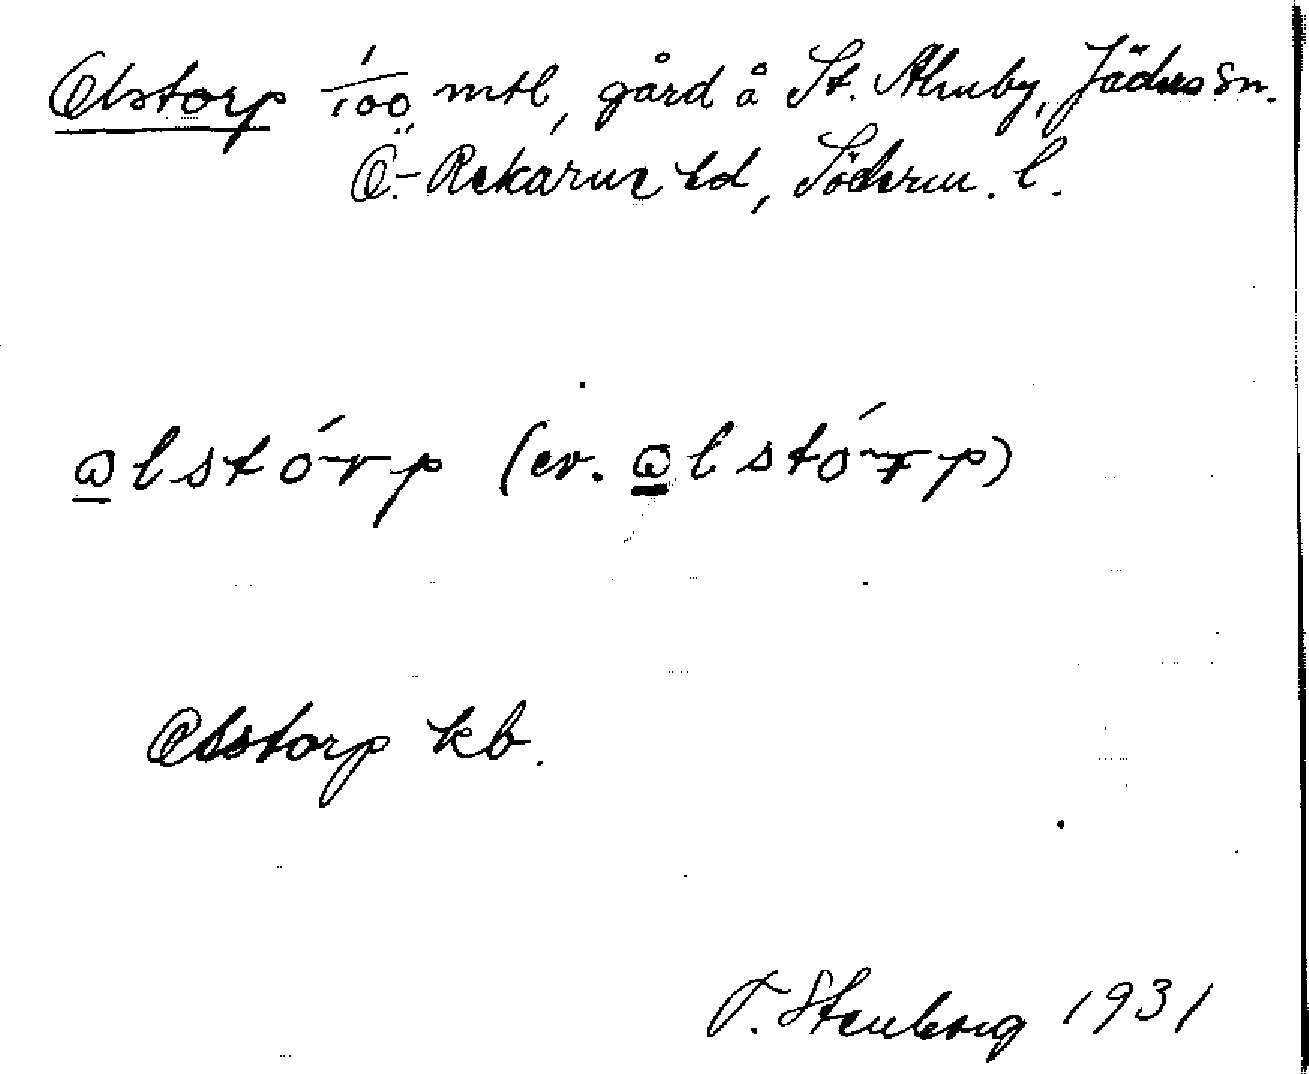 Olstorp 1/100 mtl, gård å St. Älmby, Jäders sn.
Ö.-Rekarne hd, Söderm. l.
ɷlstórp (ev. ɷlstórp)
Olstorp kb.
T. Stenberg 1931